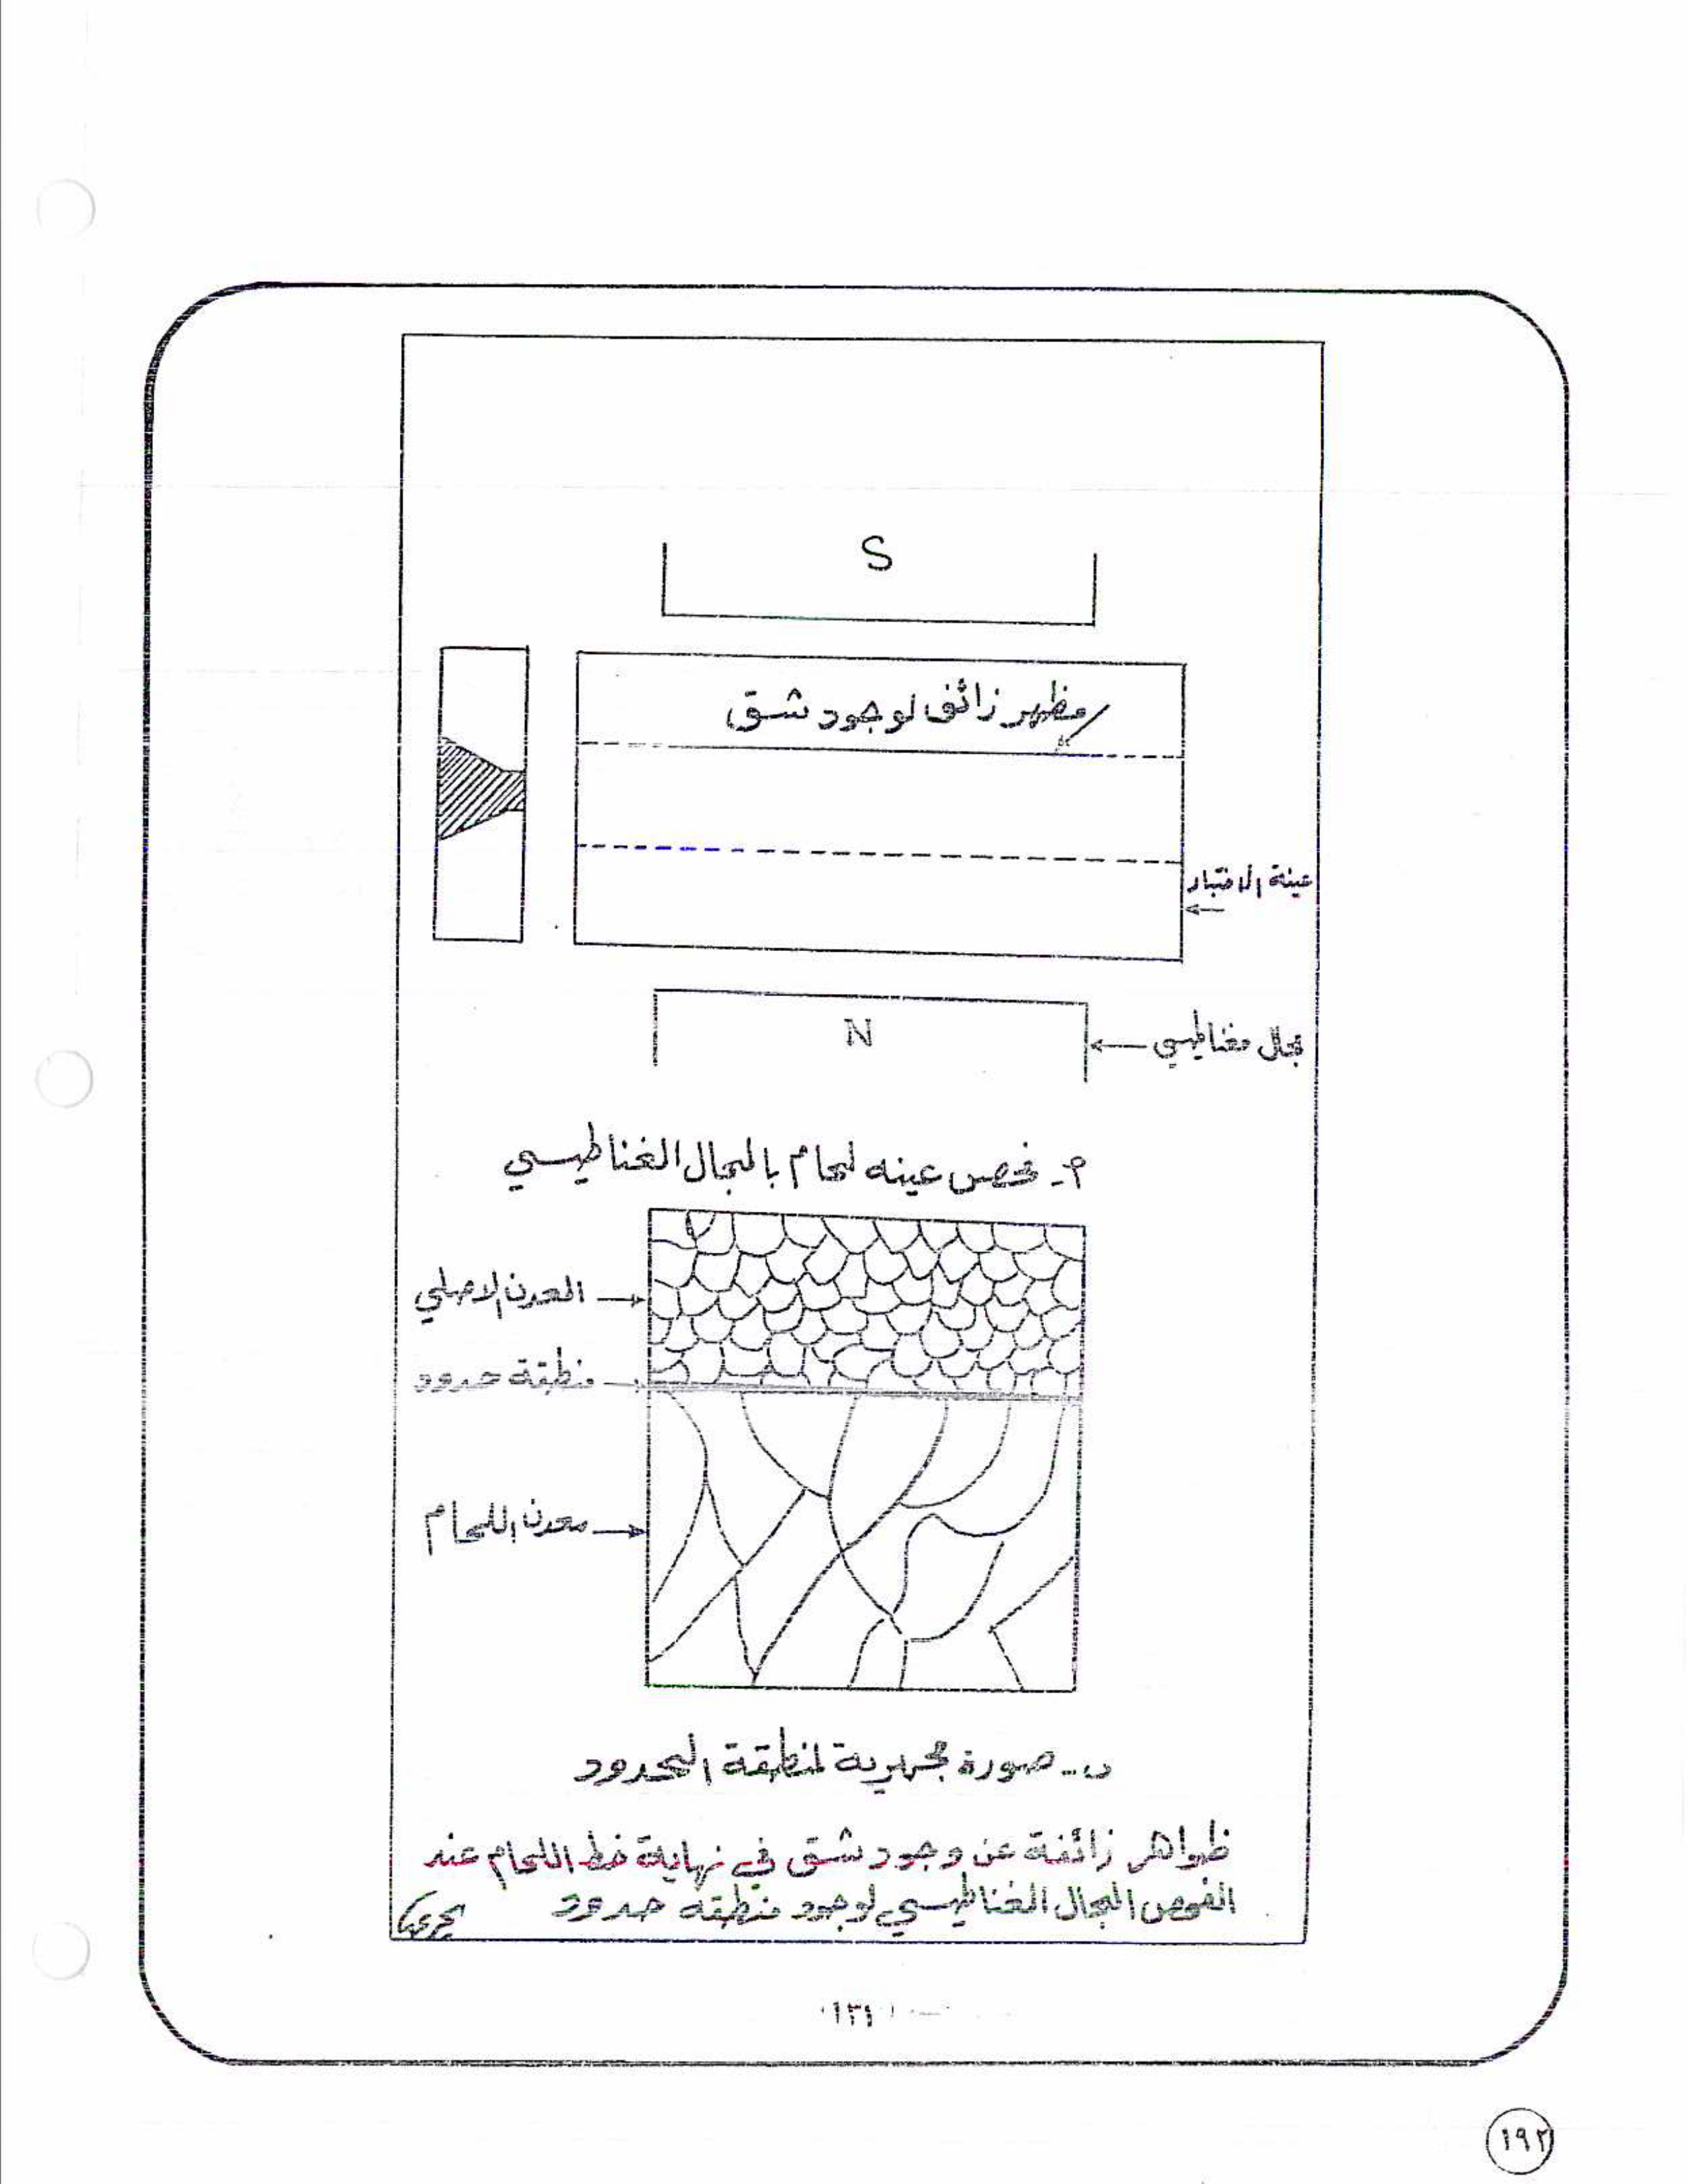 S
مظهر زائف لوجود شق
عينة الاختبار
N
مجال مغناطيسي
أ- فحص عينه لحام بالمجال المغناطيسي
المعدن الاصلي
منطقة حدود
معدن اللحام
ب- صورة مجهرية لمنطقة الحدود
ظواهر زائفة عن وجود شق في نهاية خط اللحام عند
الفحص المجال المغناطيسي لوجود منطقه حدود
١٩٢